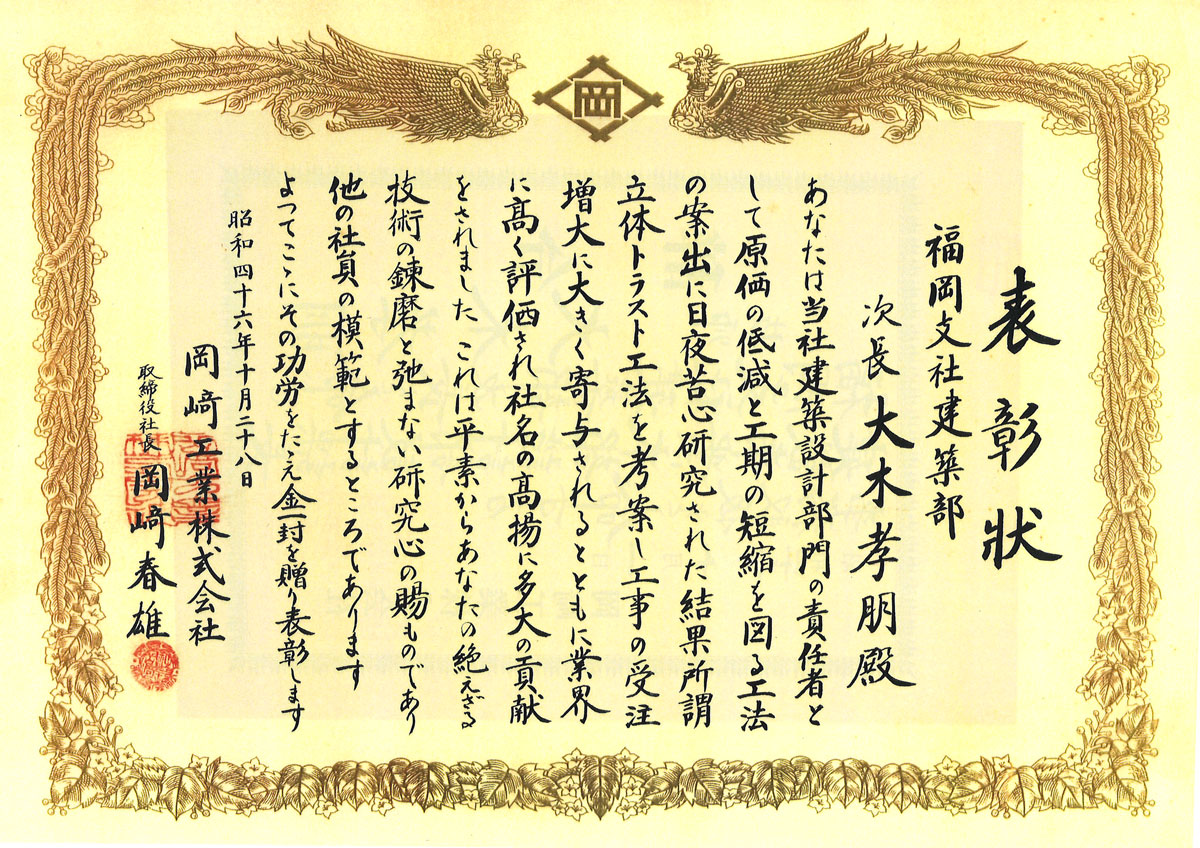 岡
表彰状
福岡支社建築部
次長 大木孝朋殿
あなたは当社建築設計部門の責任者と
して原価の低減と工期の短縮を図る工法
の案出に日夜苦心研究された結果所謂
立体トラスト工法を考案し工事の受注
増大に大きく寄与されるとともに業界
に高く評価され社名の高揚に多大の貢献
をされました これは平素からあなたの絶えざる
技術の錬磨と弛まない研究心の賜ものであり
他の社員の模範とするところであります
よってこゝにその功労をたゝえ金一封を贈り表彰します
昭和四十六年十月二十八日
岡﨑工業株式会社
取締役社長 岡﨑春雄